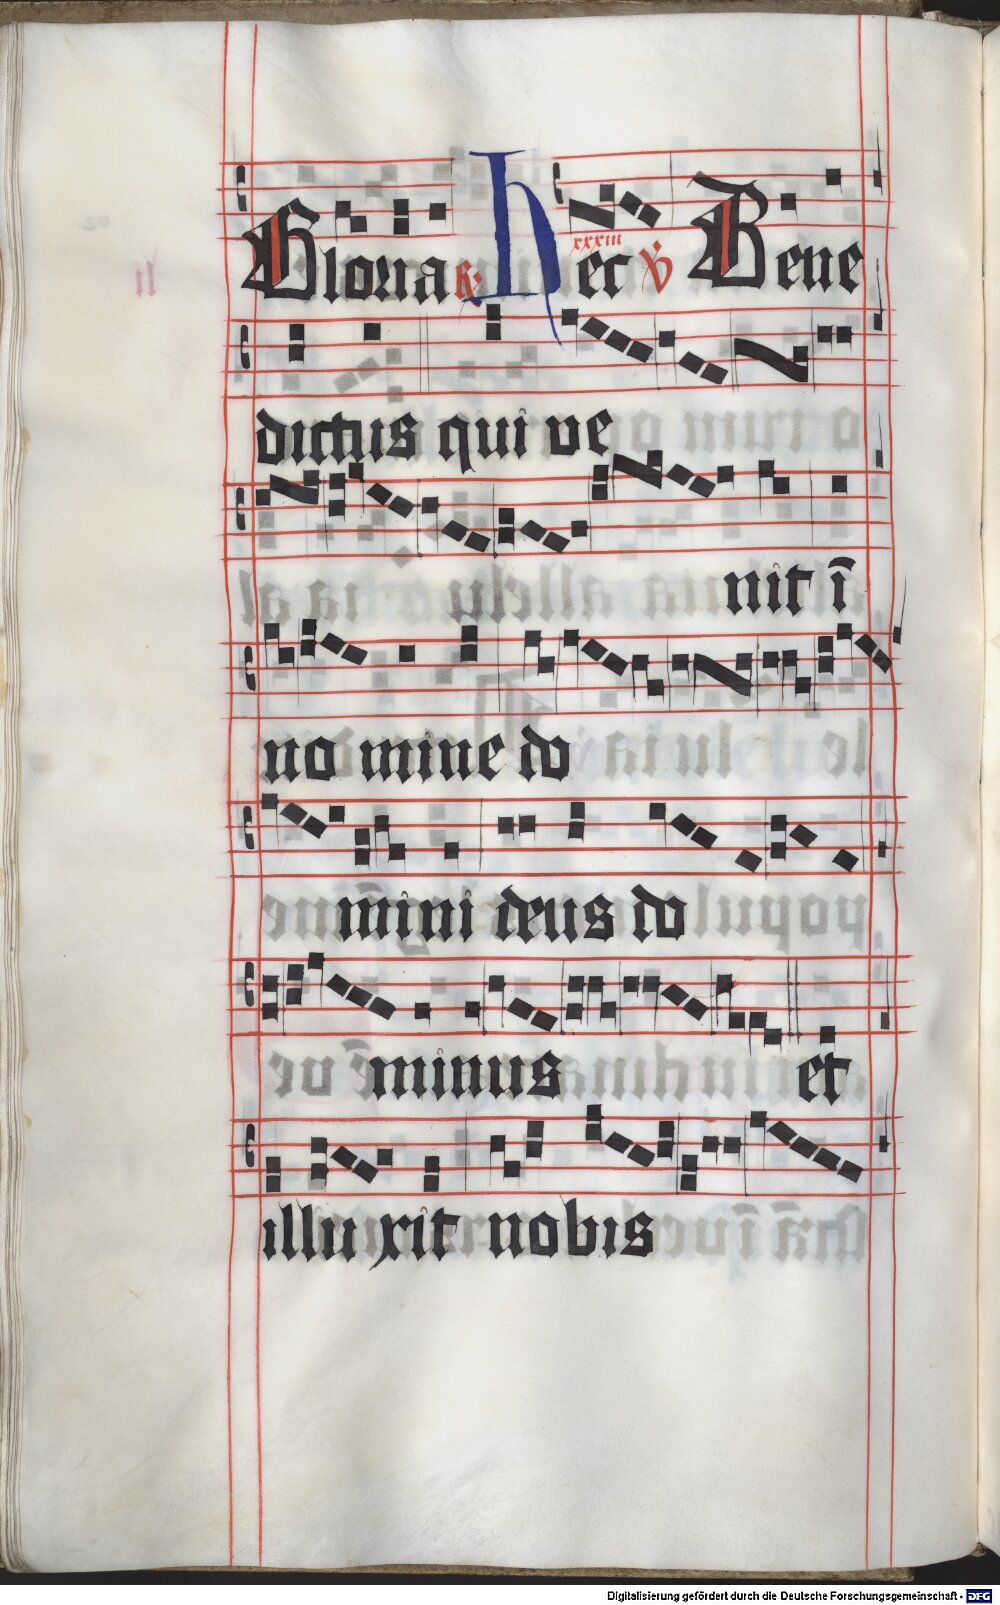 Gloria ℟ hec xxxiii ℣ Bene
dictus qui ve
nit ī
no mine do
mini deus do
minus et
illu xit nobis
Digitalisierung gefördert durch die Deutsche Forschungsgemeinschaft - DFG